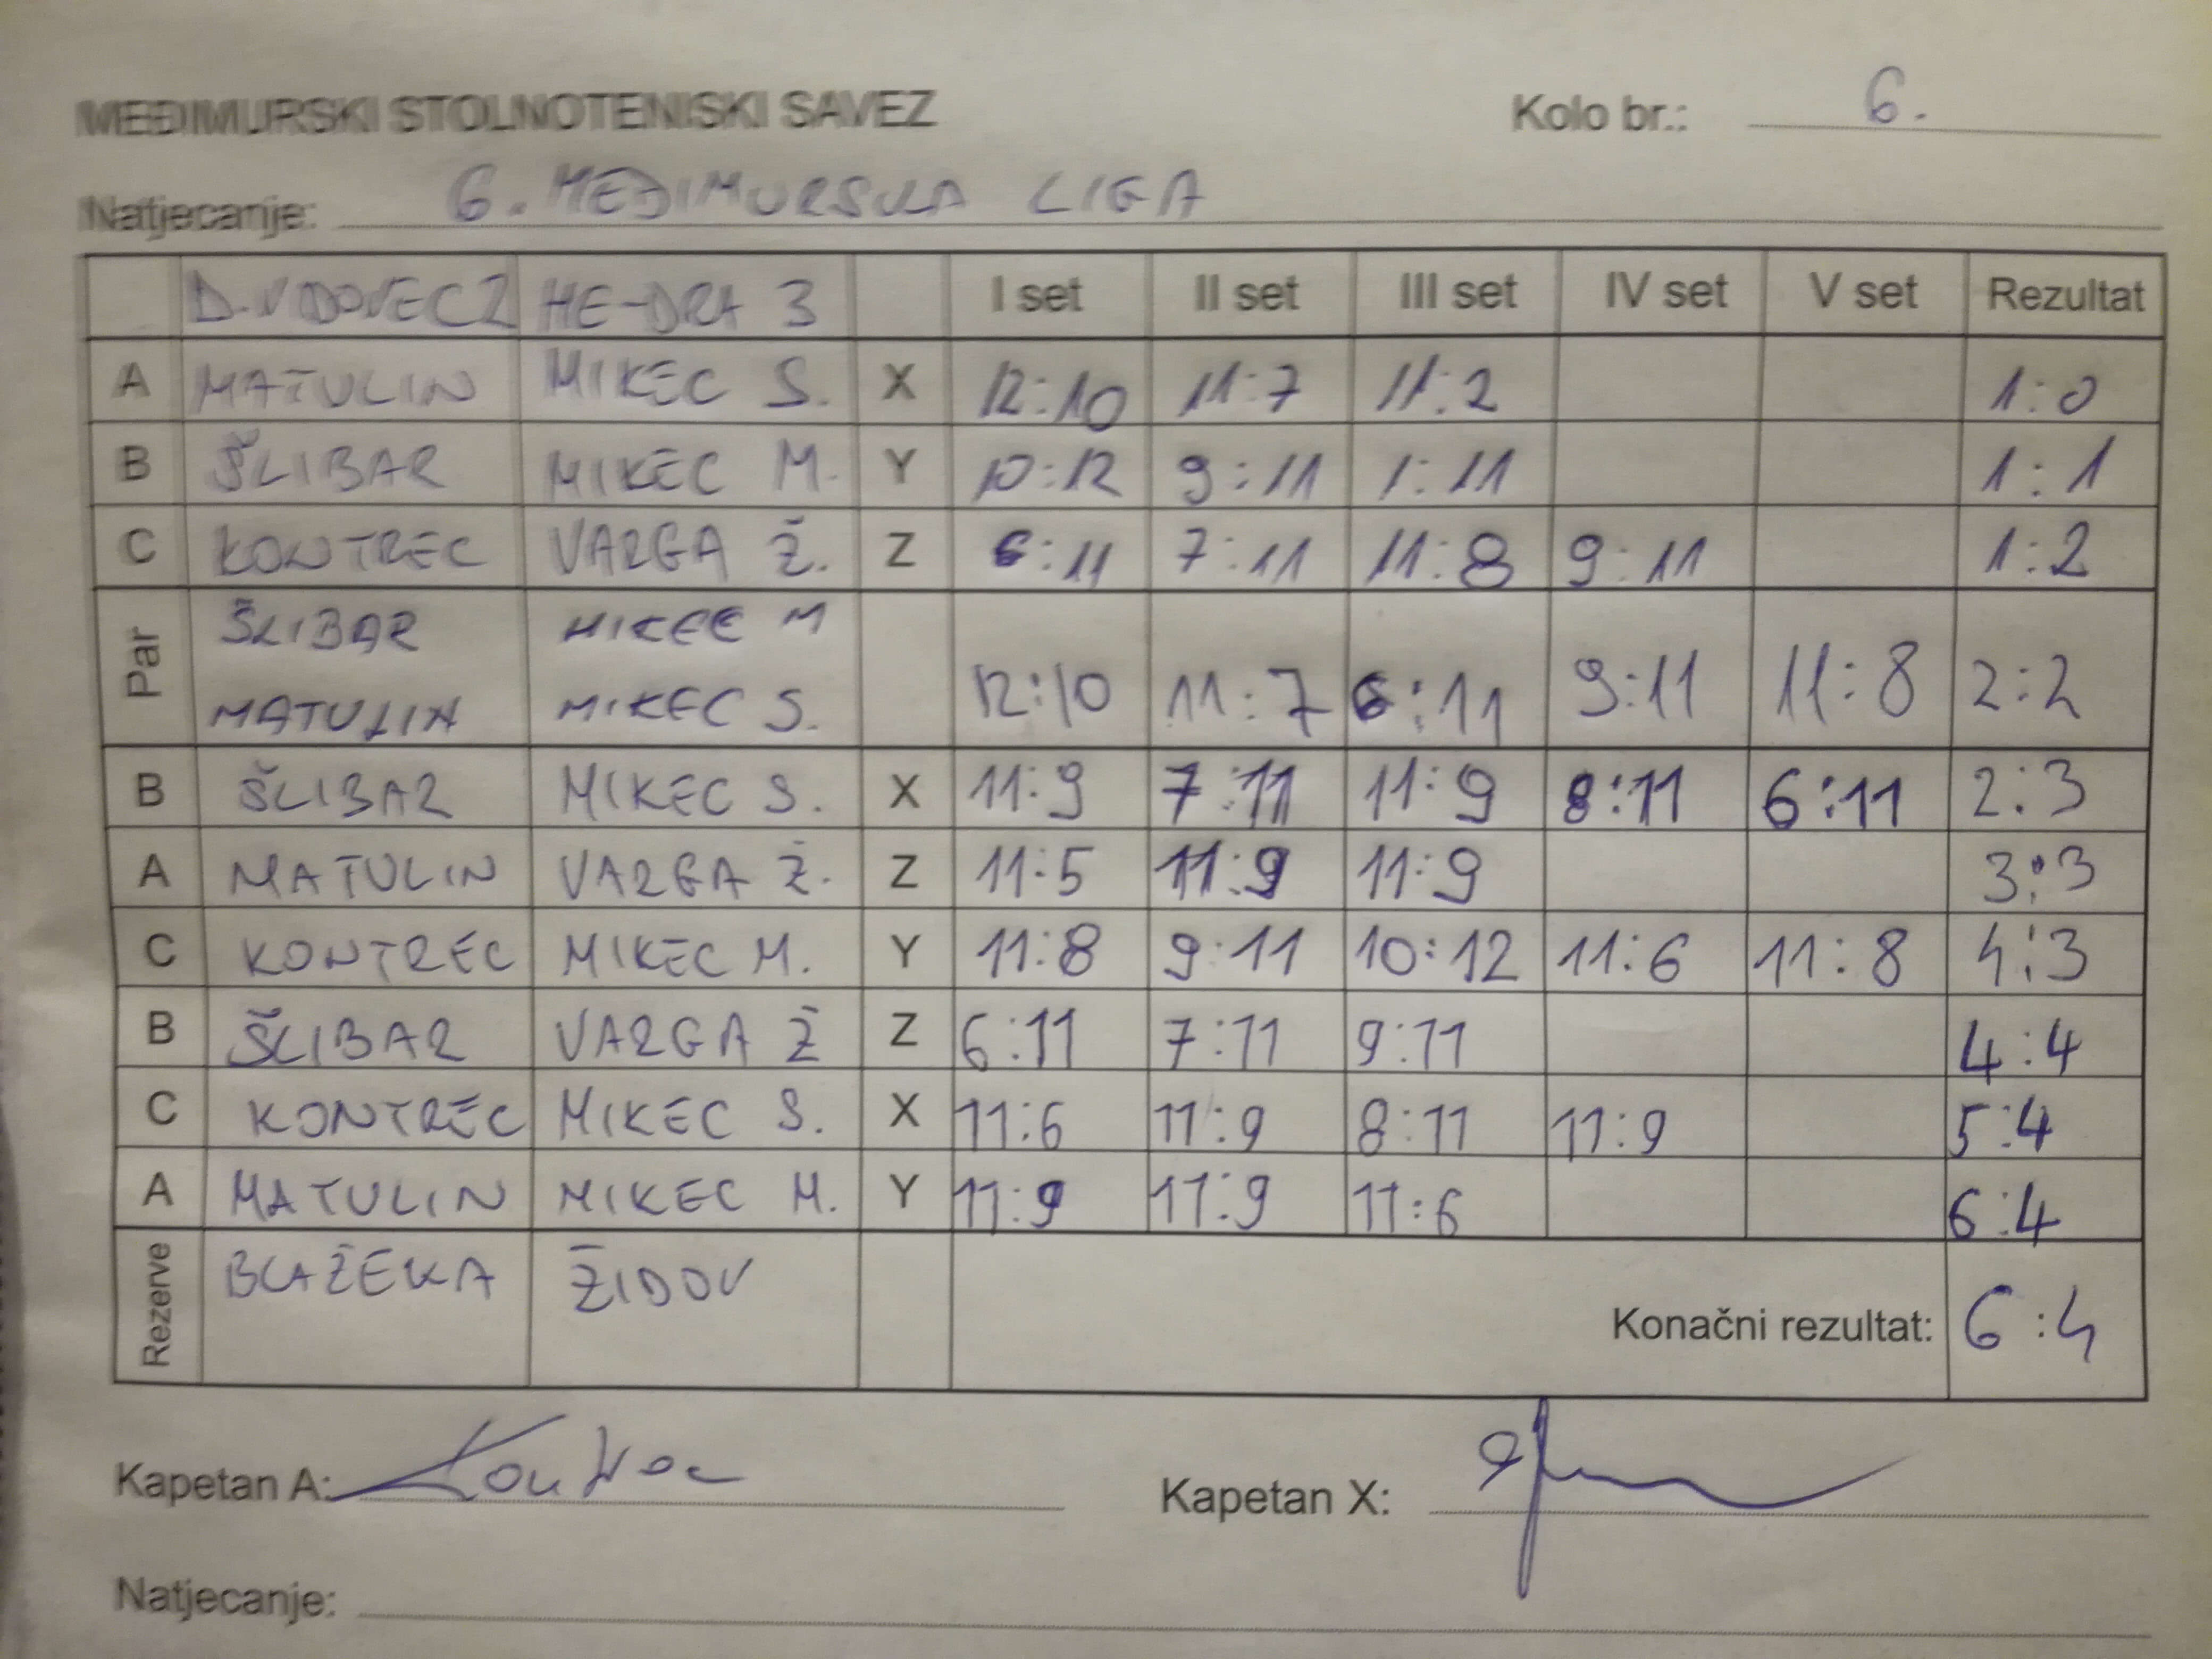 MEĐIMURSKI STOLNOTENISKI SAVEZ Kolo br.: 6.
Natjecanje: 6. MEĐIMURSKA LIGA
D. VIDOVEC 2 ME-DRA 3 I set II set III set IV set V set Rezultat
A MATULIN MIKEC S. X 12:10 11:7 11:2 1:0
B ŠLIBAR MIKEC M. Y 10:12 9:11 1:11 1:1
C KONTREC VARGA Ž. Z 6:11 7:11 11:8 9:11 1:2
Par ŠLIBAR MIKEC M
MATULIN MIKEC S. 12:10 11:7 6:11 9:11 11:8 2:2
B ŠLIBAR MIKEC S. X 11:9 7:11 11:9 8:11 6:11 2:3
A MATULIN VARGA Ž. Z 11:5 11:9 11:9 3:3
C KONTREC MIKEC M. Y 11:8 9:11 10:12 11:6 11:8 4:3
B ŠLIBAR VARGA Ž Z 6:11 7:11 9:11 4:4
C KONTREC MIKEC S. X 11:6 11:9 8:11 11:9 5:4
A MATULIN MIKEC M. Y 11:9 11:9 11:6 6:4
Rezerve BLAŽEKA ŽIDOV
Konačni rezultat: 6:4
Kapetan A: Kontrec Kapetan X:
Natjecanje: